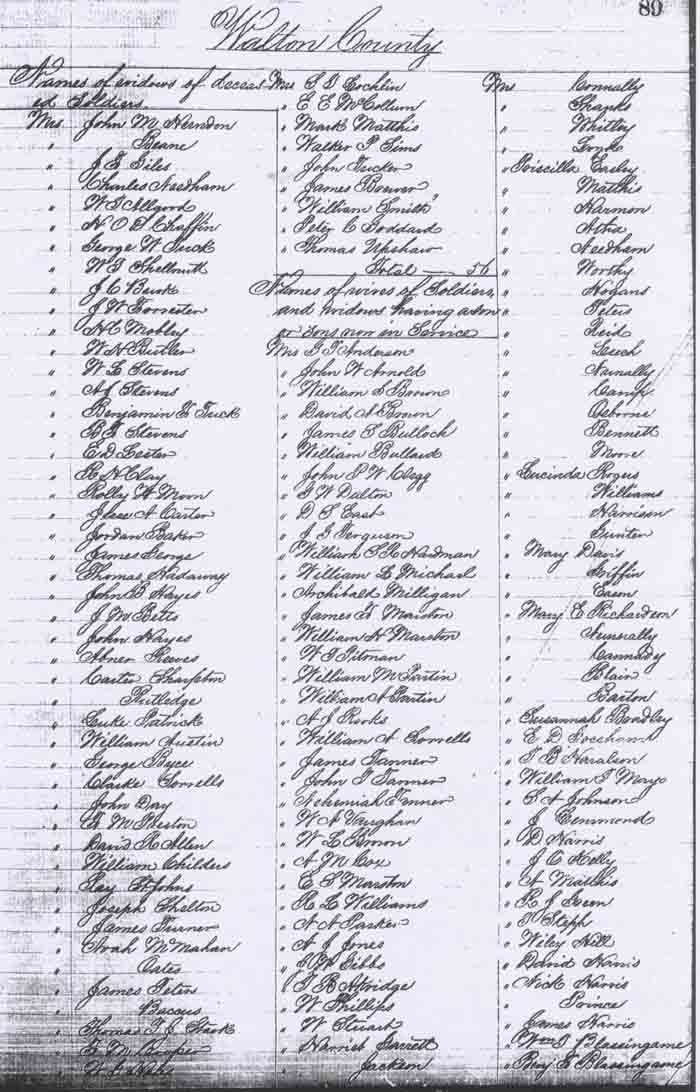 89
Walton County
Names of widows of deceas
ed Soldiers.
Mrs John M Herndon
" Beane
" J E Giles
" Charles Needham
" W T Allgood
" N O S Chaffin
" George W Tuck
" W T Shellnutt
" J C
" J W Forrester
" H C Mobley
" W H Butler
" W L Stevens
" A J Stevens
" Benjamin F Tuck
" B F Stevens
" E D Lester
" R H Clay
" Rolly H Moon
" Jesse A Carter
" Jordan Baker
" James George
" Thomas Hadaway
" John B Hayes
" J M Betts
" John Hayes
" Abner Reeves
" Carter
" Rutledge
" Luke Patrick
" William Austin
" George
" Clarke Sorrells
" John Day
" M Preston
" David R Allen
" William Childers
" Ray St Johns
" Joseph Shelton
" James Turner
" Noah McMahan
" Oates
" James Peters
" Baccus
" Thomas T J
" M Cooper
"
Mrs S S Cochlin
" E E McCollum
" Mark Matthis
" Walker P Sims
" John Tucker
" James Brewer
" William Smith
" Peter C Goddard
" Thomas Upshaw
Total — 56
Names of wives of Soldiers,
and widows having a son
or sons now in Service
Mrs G T Anderson
" John W Arnold
" William S Brown
" David A Brown
" James S Bulloch
" William Bullard
" John P W Clegg
" G W Dalton
" D S East
" J G Ferguson
" William S R Hardman
" William L Michael
" Archibald Milligan
" James F Marston
" William H Marston
" W T Pitman
" William M Partin
" William A Partin
" A J Rooks
" William A Sorrells
" James Tanner
" John T Tanner
" Nehemiah Tanner
" W A Vaughan
" W L Brown
" A M Cox
" E S Marston
" R L Williams
" A A Parker
" A J Jones
" Gibbs
" T B
" W Phillips
" W Stuart
" Harriet Garrett
" Jackson
Mrs Connally
" Shanks
" Whitley
"
" Priscilla Easley
" Matthis
" Harmon
"
" Needham
" Worthy
" Hogans
" Peters
" Reid
" Leech
" Nunally
" Camp
" Osborne
" Bennett
" Moore
" Lucinda
" Williams
" Harrison
" Gunter
" Mary Davis
" Griffin
" Eason
" Mary E Richardson
" Nunerally
" Cannady
" Blair
" Barton
" Susannah Bradley
" E D
" T B Haralson
" William T Mayo
" E A Johnson
" J Emmond
" D Harris
" J C Kelly
" A Matthis
" R J
" Stepp
" Wiley Hill
" David Harris
" Nick Harris
" Prince
" James Harris
" Wm J Blassingame
" Benj F Blassingame